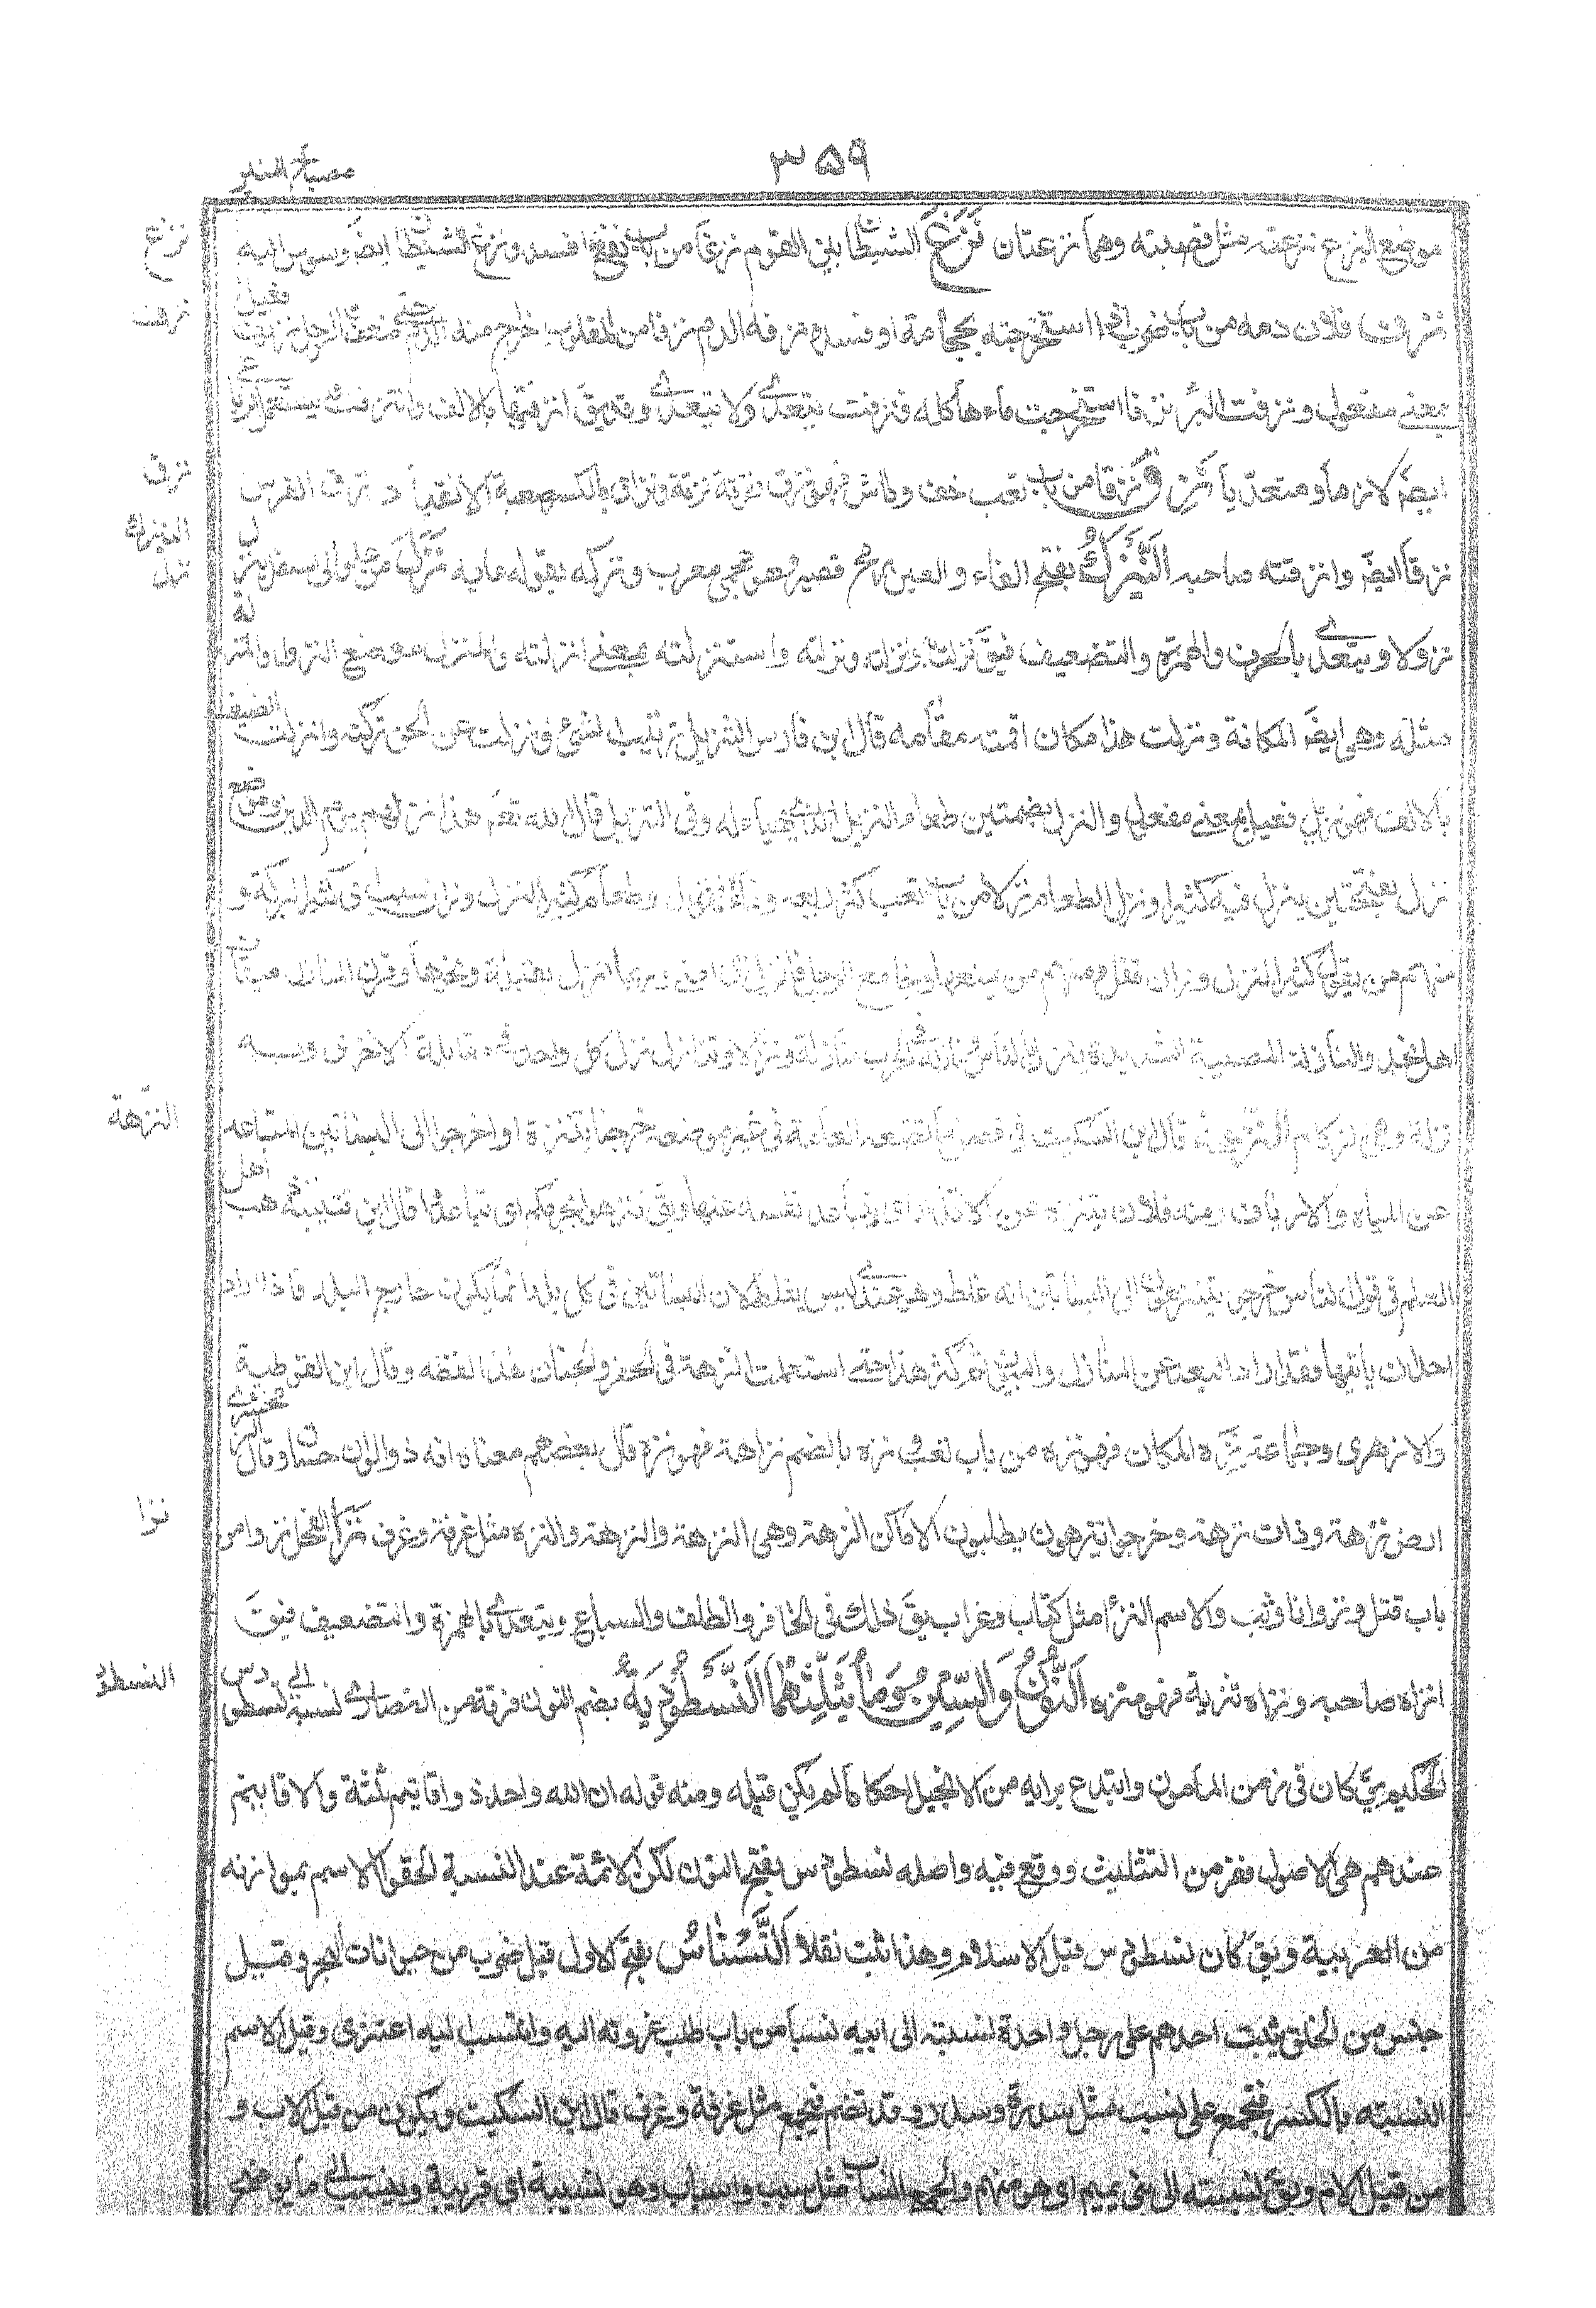 ۳۵۹
مصباح المنير
موضع النزع نزعته مثل قصبته وهما نزعتان نَزَغَ الشيطان بين القوم نزغا من باب نفع افسد ونزغ الشيطان ايضً وسوس اليه
نزع
نزف
نزف فلان دمه من باب ضرب اذا استخرجته بحجامة او فصد ونزفه الدم نزفا من المقلوب خرج منه الدم حتى ضعف فالرجل نزيف فعيل
بمعنى مفعول ونزفت البئر نزفا استخرجت ماءها كله فنزفت يتعدى ولا يتعدى وقد يقَ انزفتها بالالف وانزفت يستعمل
ايضً لازما ومتعديا نَزِقَ نزقا من باب تعب خف وطاش فهو نزق نزقة وناقة نزاق بالكسر صعبة الانقياد ونزق الفرس
نزق
النيزك
نزل
نزقا ايضً وانزقته صاحبه اَلنَّيْزَكُ بفتح الفاء والعين رمح قصير وهو عجمي معرب ونزكه بقوله عابه نَزَلَ من علو الى سفل ينزل
نزولا ويتعدى بالحرف والهمزة والتضعيف فيقَ نزلت به وانزلته ونزلته واستنزلته بمعنى انزلته والمنزل موضع النزول والمنزلة
مثله وهي ايضً المكانة ونزلت هذا مكان اقمته مقامه قال ابن فارس التنزيل ترتيب الشئ ونزلت عن الحق تركته وانزلت الضيف
بالالف فهو نزيل فعيل بمعنى مفعول والنزل بضمتين طعام النزيل الذي يهيأ له وفي التنزيل قال الله تعَم هذا نزلهم يوم الدين وموضع
نزل بفتحتين ينزل فيه كثيرا ونزل الطعام نزلا من باب تعب كثر ريعه ونماؤه فهو نزل وطعام كثير النزل وزان سبب اى كثير البركة و
منهم من يقول كثير النزل وزان قفل ومنهم من يمنعها وجامع الرجل فانزل اى امنى وربما انزل بقبلة ونحوها وقرن المنازل ميقات
اهل نجد والنازلة المصيبة الشديدة تنزل بالناس ونازله في الحرب منازلة ونزالا وتنازلا نزل كل واحد في مقابلة الاخر وبه
نزلة وهي زكام النُّزْهَة قال ابن السكيت في فصل ما تضعه العامة في غير موضعه خرجنا نتنزه اذا خرجوا الى البساتين انما التباعد
النزهة
عن المياه والارياف ومنه فلان يتنزه عن الاقذار اى يباعد نفسه عنها ويقَ تنزهوا بحرمكم اى تباعدوا قال ابن قتيبة ذهب اهل
العلم في قول الناس خرجوا يتنزهون الى البساتين انه غلط وهو عندي ليس بغلط لان البساتين في كل بلد انما يكون خارج البلد فاذا اراد
احد ان ياتيها فقد اراد البعد عن المنازل والبيوت ثم كثر هذا حتى استعملت النزهة في الخضر والجنان هذا لفظه وقال ابن القوطية
والازهرى وجماعة نَزِهَ المكان فهو نزه من باب تعب ونزه بالضم نزاهة فهو نزه قال بعضهم معناه انه ذو الوان حسان وقال الزمخشري
ارض نزهة وذات نزهة وخرجوا يتنزهون يطلبون الاماكن النزهة وهي النزهة والنزهة والنزه مثل غرفة وغرف نَزَا الفحل نزوا من
نزا
باب قتل ونزوانا وثب والاسم النزاء مثل كتاب وغراب يقَ ذلك في الحافر والظلف والسباع ويتعدى بالهمزة والتضعيف فيقَ
انزاه صاحبه ونزاه تنزية فهو منزه اَلنُّوْنُ وَالسِّيْنُ وَمَا يَثْلِثُهُمَا اَلنُّسْطُوْرِيَةُ بضم النون فرقة من النصارى نسبة الى نسطورس
النسطو
الحكيم كان في زمن المأمون وابتدع برايه من الانجيل احكاما لم يكن قبله ومنه قوله ان الله واحد ذو اقانيم ثلثة والاقانيم
عندهم هي الاصول ففر من التثليث ووقع فيه واصله نسطورس بفتح النون لكن الائمة عند النسبة الحقوا الاسم بموازنه
من العربية ويقَ كان نسطورس قبل الاسلام وهذا اثبت نقلا اَلنَّسْنَاسُ بفتح الاول قيل ضرب من حيوانات البحر وقيل
جنس من الخلق يثبت احدهم على رجل واحدة نسبته الى ابيه نسبا من باب طلب عزوته اليه وانتسب اليه اعتزى وقيل الاسم
النسبة بالكسر فتجمع على نسب مثل سدرة وسدر وقد تضم فيجمع مثل غرفة وغرف قال ابن السكيت ويكون من قبل الاب و
من قبل الام ويقَ نسبته الى بنى تميم اى هو منهم والجمع انساب مثل سبب واسباب وهو نسيبه اى قريبه وينسب الى ما يوضح